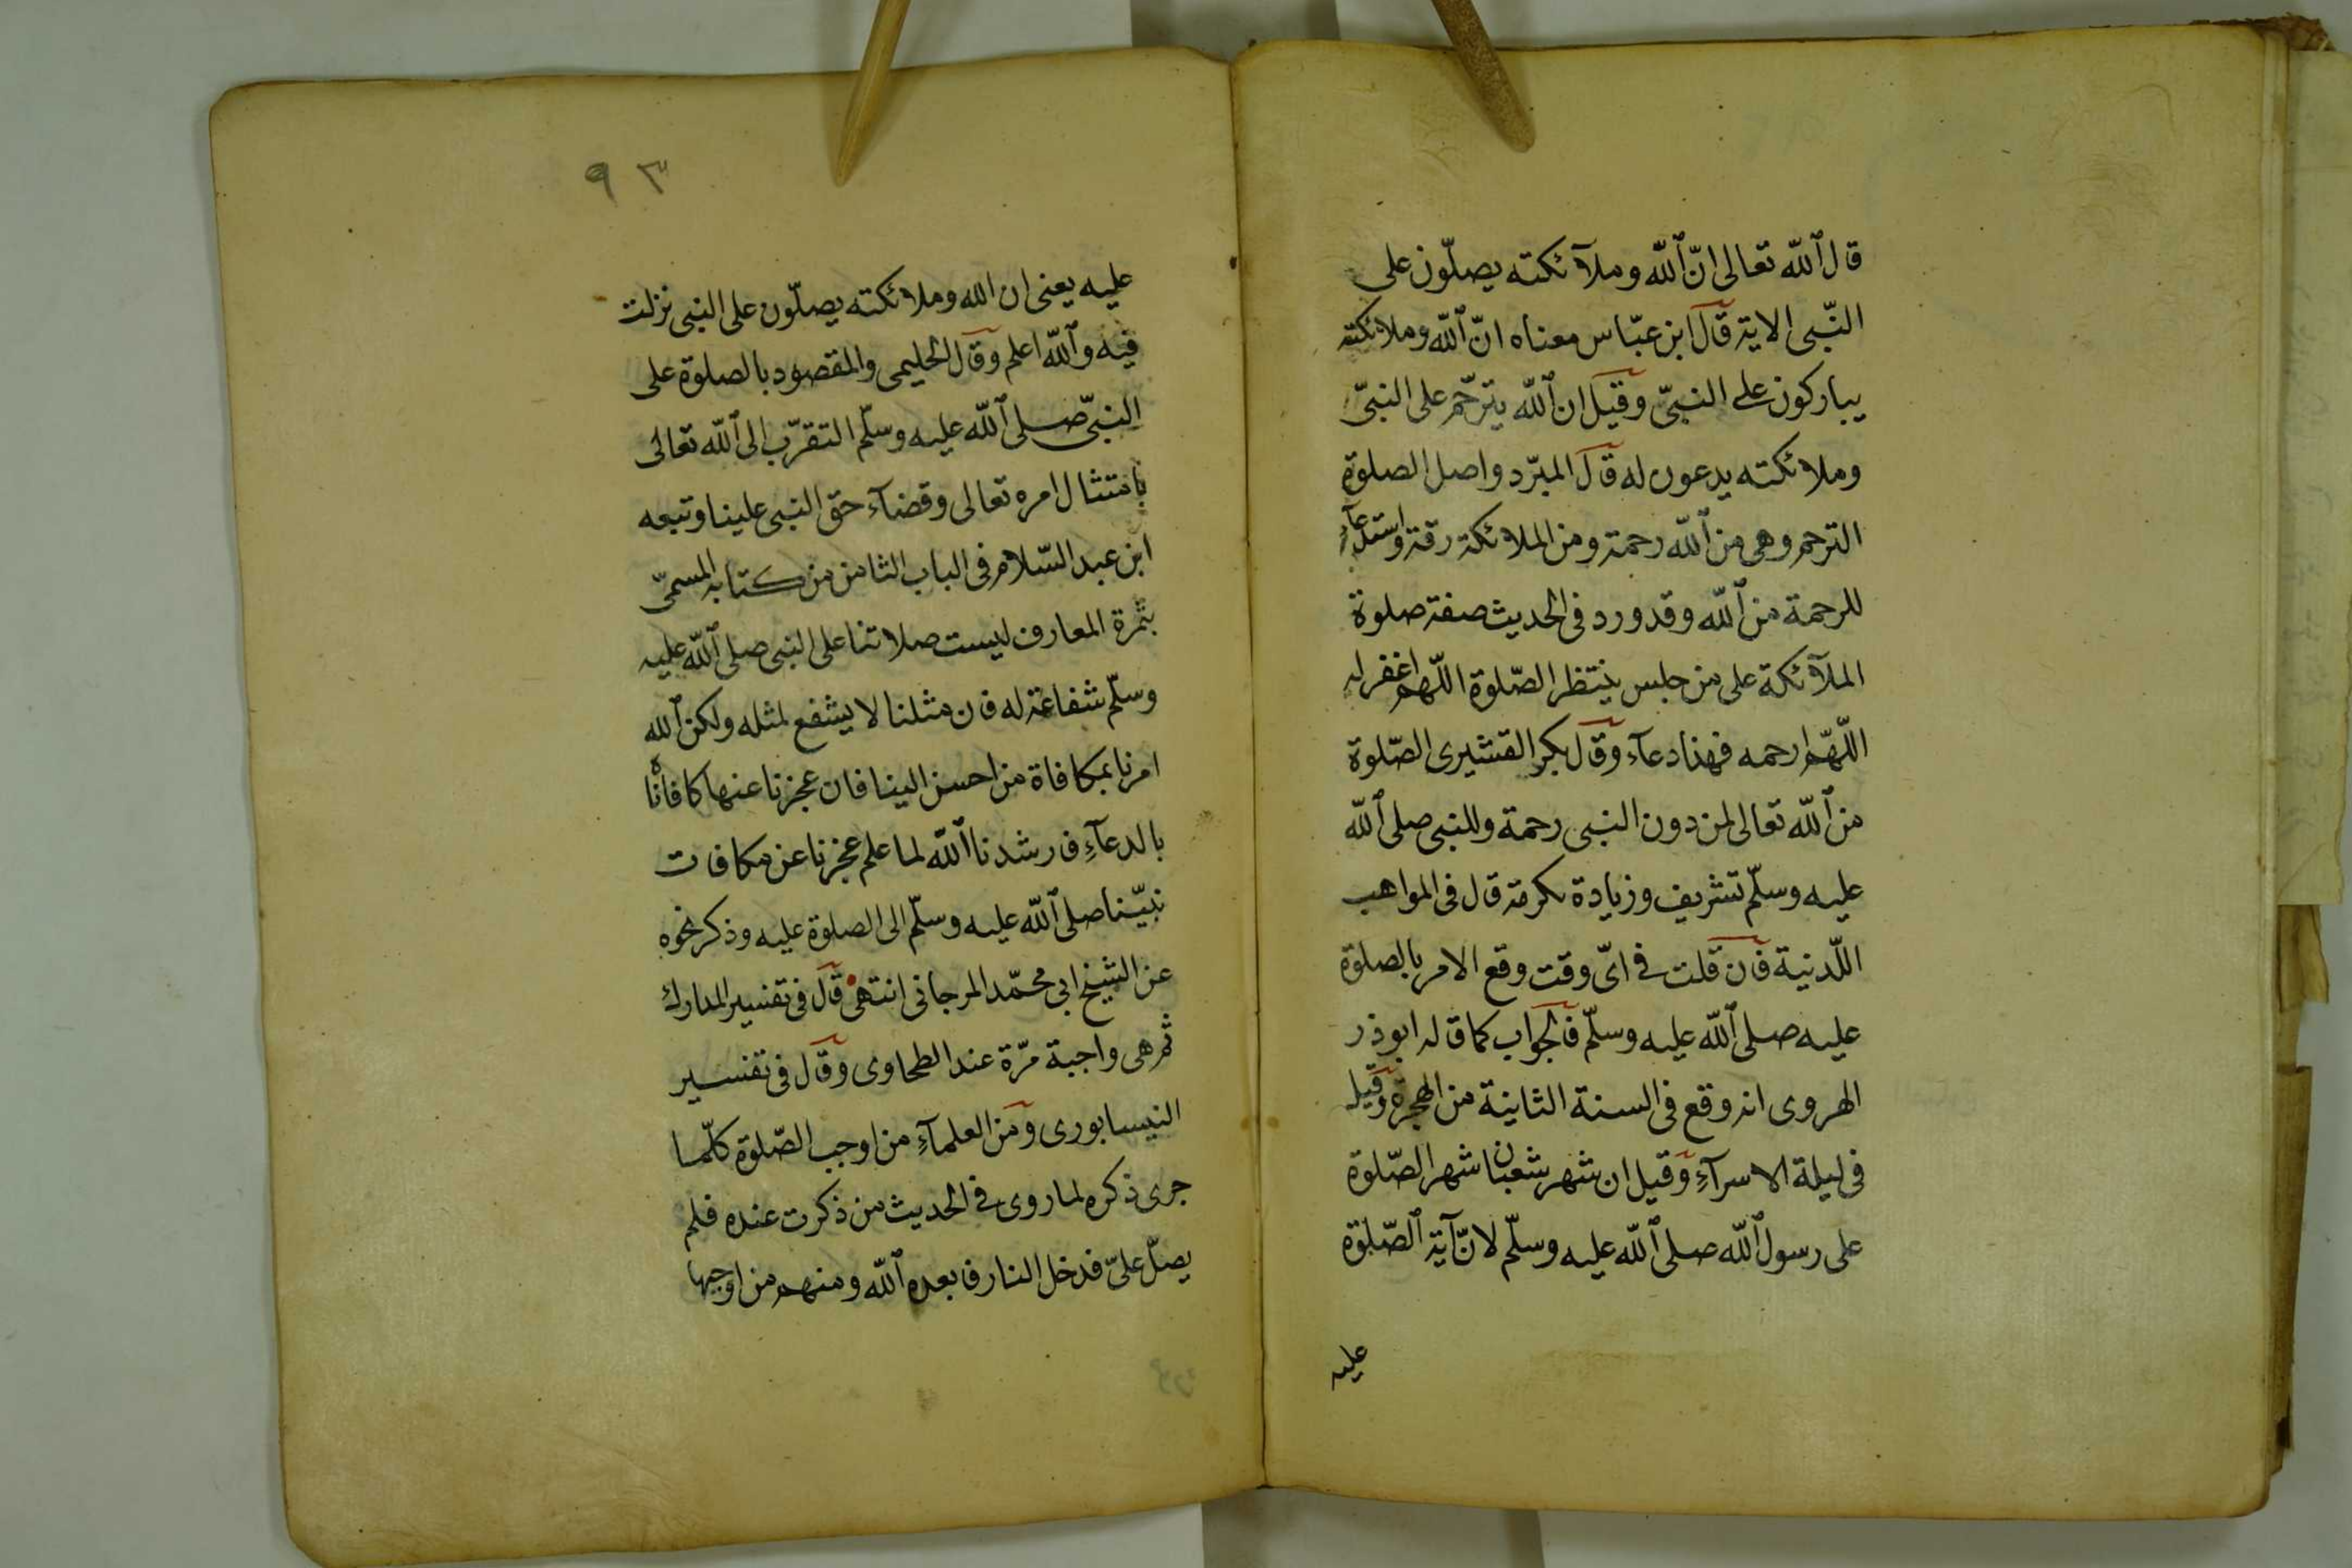 قال الله تعالى انّ الله وملآئكته يصلّون على
النّبى الاية قال ابن عبّاس معناه انّ الله وملائكته
يباركون على النبىّ وقيل ان الله يترحّم على النبىّ
وملائكته يدعون له قال المبرّد واصل الصلوة
الترحم وهى من الله رحمة ومن الملائكة رقة واستدعآء
للرحمة من الله وقد ورد فى الحديث صفة صلوة
الملآئكة على من جلس ينتظر الصّلوة اللّهم اغفر له
اللّهمّ ارحمه فهذا دعآء وقال بكر القشيرى الصّلوة
من الله تعالى لمن دون النبى رحمة وللنبى صلى الله
عليه وسلّم تشريف وزيادة تكرمة قال فى المواهب
اللّدنية فان قلت فى اىّ وقت وقع الامر بالصلوة
عليه صلى الله عليه وسلّم فالجواب كما قاله ابو ذر
الهروى انه وقع فى السنة الثانية من الهجرة وقيل
فى ليلة الاسرآء وقيل ان شهر شعبان شهر الصّلوة
على رسول الله صلى الله عليه وسلّم لانّ آية الصّلوة
عليه
٩٣
عليه يعنى ان الله وملائكته يصلّون على النبى نزلت
فيه والله اعلم وقال الحليمى والمقصود بالصلوة على
النبىّ صلى الله عليه وسلّم التقرّب الى الله تعالى
بامتثال امره تعالى وقضآء حق النبى علينا وتبعه
ابن عبد السّلام فى الباب الثامن من كتابه المسمّى
بثمرة المعارف ليست صلاتنا على النبى صلى الله عليه
وسلّم شفاعة له فان مثلنا لا يشفع لمثله ولكن الله
امرنا بمكافاة من احسن الينا فان عجزنا عنها كافاناه
بالدعآء فارشدنا الله لما علم عجزنا عن مكافات
نبيّنا صلى الله عليه وسلّم الى الصلوة عليه وذكر نحوه
عن الشيخ ابى محمّد المرجانى انتهى قال فى تفسير المدارك
ثم هى واجبة مرّة عند الطحاوى وقال فى تفسير
النيسابورى ومن العلمآء من اوجب الصّلوة كلّما
جرى ذكره لما روى فى الحديث من ذكرت عنده فلم
يصلّ علىّ فدخل النار فابعده الله ومنهم من اوجبها